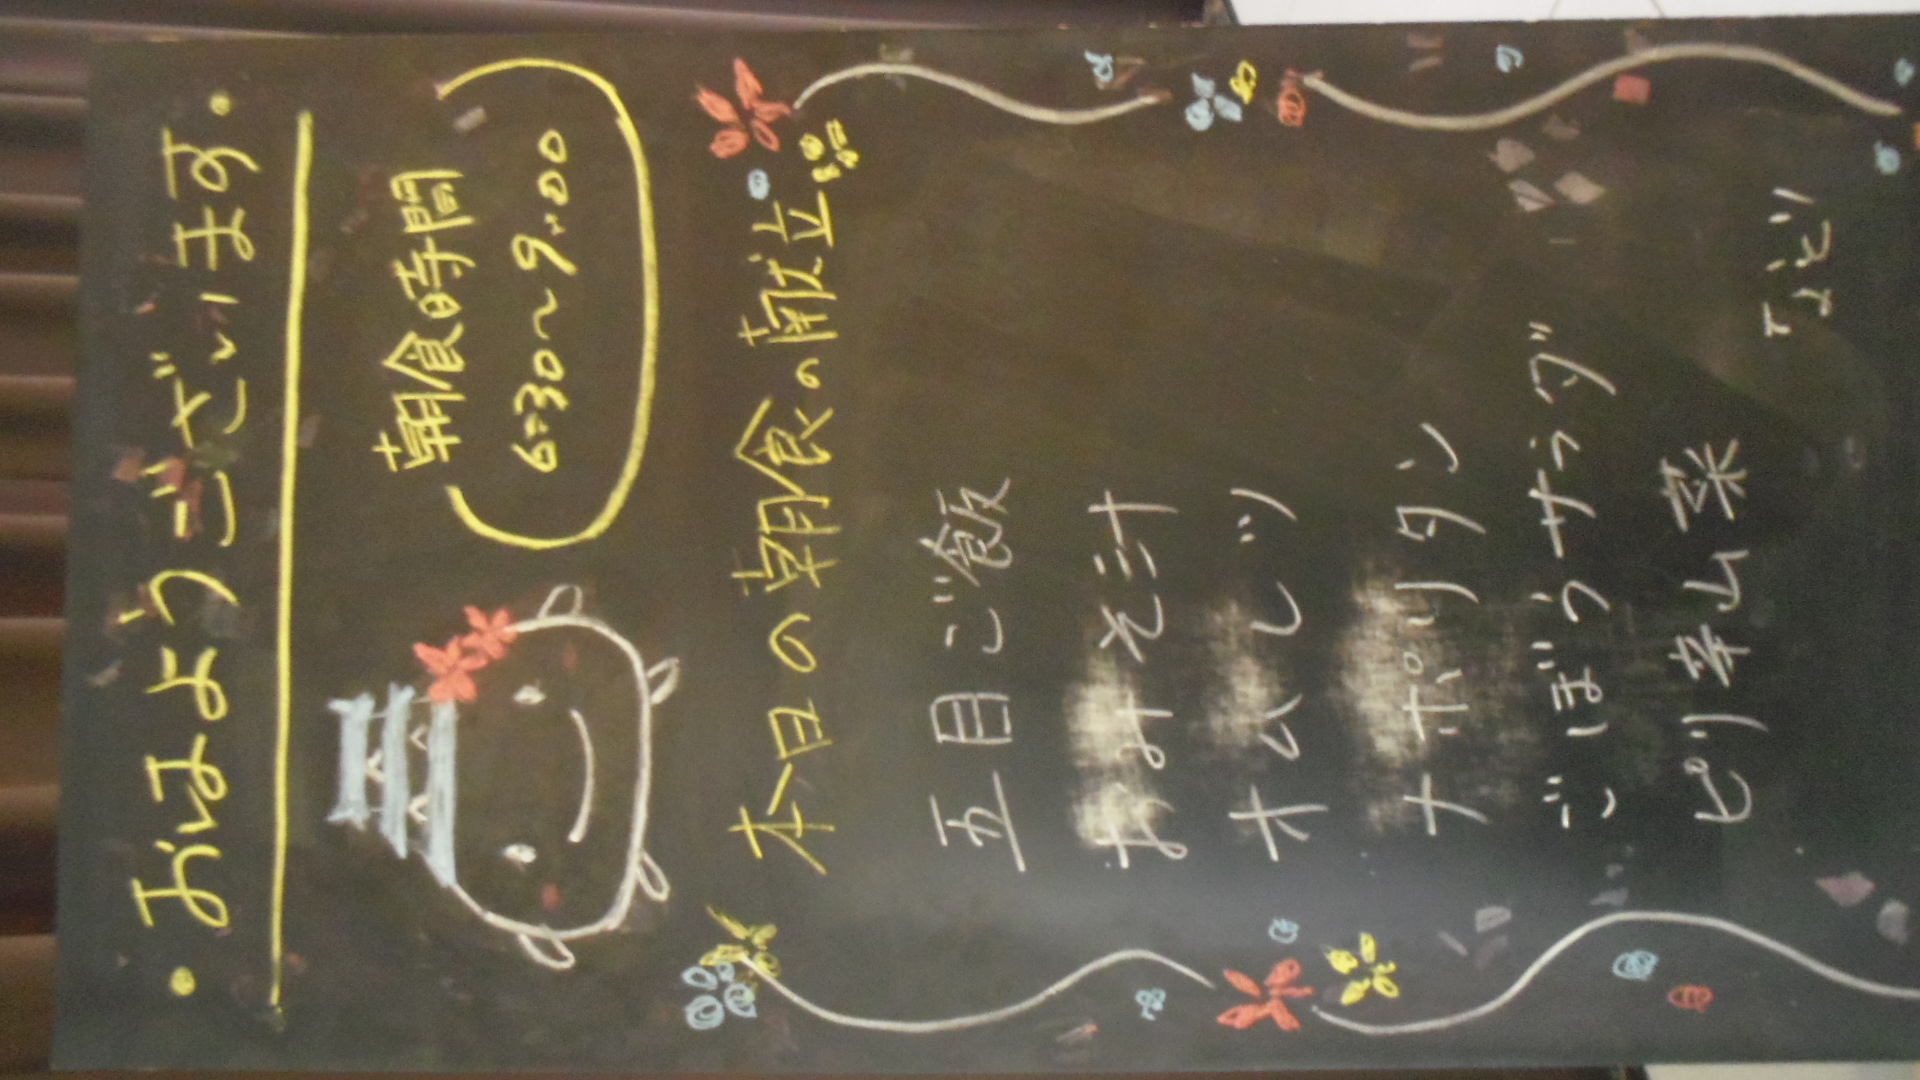 ・おはようございます・
朝食時間
6:30〜9:00
本日の朝食の献立
五目ご飯
おみそ汁
オムレツ
ナポリタン
ごぼうサラダ
ピリ辛山菜
などなど